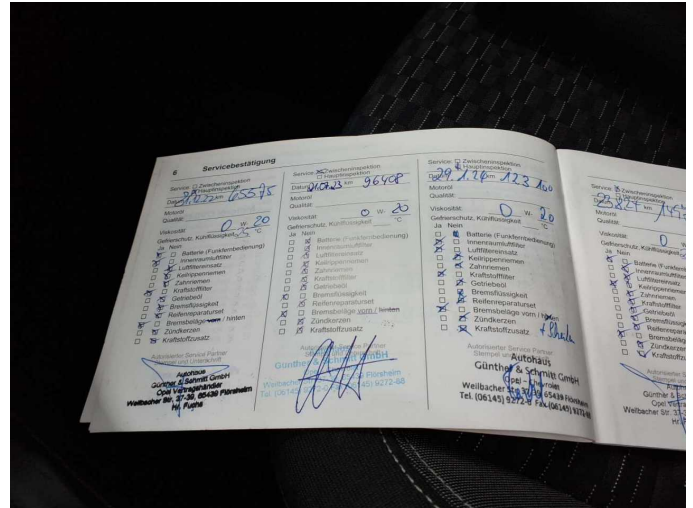 6 Servicebestätigung
Service: Zwischeninspektion
Hauptinspektion
Datum km 65575
Motoröl
Qualität:
Viskosität 0 W- 20
Gefrierschutz, Kühlflüssigkeit °C
Ja Nein
Batterie (Funkfernbedienung)
Innenraumluftfilter
Luftfiltereinsatz
Keilrippenriemen
Zahnriemen
Kraftstofffilter
Getriebeöl
Bremsflüssigkeit
Reifenreparaturset
Bremsbeläge vorn / hinten
Zündkerzen
Kraftstoffzusatz
Autorisierter Service Partner
Stempel und Unterschrift
Autohaus
Günther & Schmitt GmbH
Opel Vertragshändler
Weilbacher Str. 37-39, 65439 Flörsheim
Hr. Fuchs
Service: Zwischeninspektion
Hauptinspektion
Datum 21.07.23 km 96408
Motoröl
Qualität:
Viskosität 0 W- 20
Gefrierschutz, Kühlflüssigkeit °C
Ja Nein
Batterie (Funkfernbedienung)
Innenraumluftfilter
Luftfiltereinsatz
Keilrippenriemen
Zahnriemen
Kraftstofffilter
Getriebeöl
Bremsflüssigkeit
Reifenreparaturset
Bremsbeläge vorn / hinten
Zündkerzen
Kraftstoffzusatz
Autorisierter Service Partner
Günther & Schmitt GmbH
Weilbacher Flörsheim
Tel. (06145) 9272-88
Service: Zwischeninspektion
Hauptinspektion
29.1.26 km 123 100
Motoröl
Qualität:
Viskosität: 0 W- 20
Gefrierschutz, Kühlflüssigkeit °C
Ja Nein
Batterie (Funkfernbedienung)
Innenraumluftfilter
Luftfiltereinsatz
Keilrippenriemen
Zahnriemen
Kraftstofffilter
Getriebeöl
Bremsflüssigkeit
Reifenreparaturset
Bremsbeläge vorn / hinten
Zündkerzen
Kraftstoffzusatz
Autorisierter Service Partner
Stempel
Autohaus
Günther & Schmitt GmbH
Opel - Chevrolet
Weilbacher 65439 Flörsheim
Tel. (06145) Fax (06145)
Service: Zwischeninspektion
Hauptinspektion
km
Motoröl
Qualität:
Viskosität: 0
Gefrierschutz, Kühlflüssigkeit
Ja Nein
Batterie
Innenraumluftfilter
Luftfiltereinsatz
Keilrippenriemen
Zahnriemen
Kraftstofffilter
Getriebeöl
Bremsflüssigkeit
Bremsbeläge
Zündkerzen
Autorisierter
Günther &
Opel
Weilbacher Str.